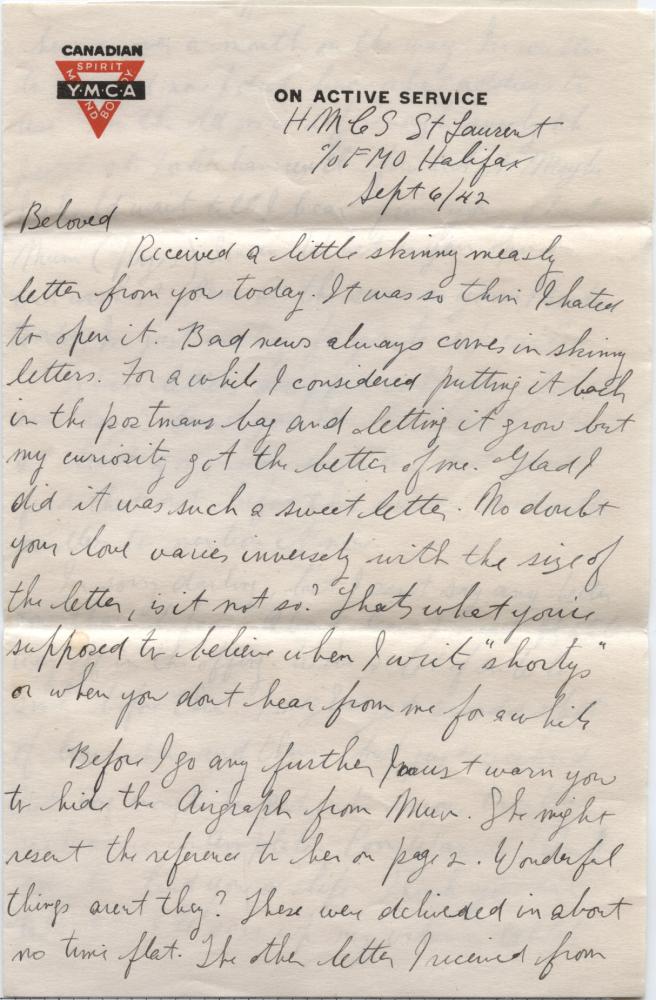 CANADIAN
SPIRIT
Y·M·C·A
MIND
BODY
ON ACTIVE SERVICE
HMCS St Laurent
c/o FMO Halifax
Sept 6/42
Beloved
Received a little skinny measly
letter from you today. It was so thin I hated
to open it. Bad news always comes in skinny
letters. For a while I considered putting it back
in the postmans bag and letting it grow but
my curiosity got the better of me. Glad I
did it was such a sweet letter. No doubt
your love varies inversely with the size of
the letter, is it not so? Thats what you're
supposed to believe when I write "shortys"
or when you dont hear from me for a while
Before I go any further I must warn you
to hide the Airgraph from Mum. She might
resent the reference to her on page 2. Wonderful
things arent they? These were delivered in about
no time flat. The other letter I received from